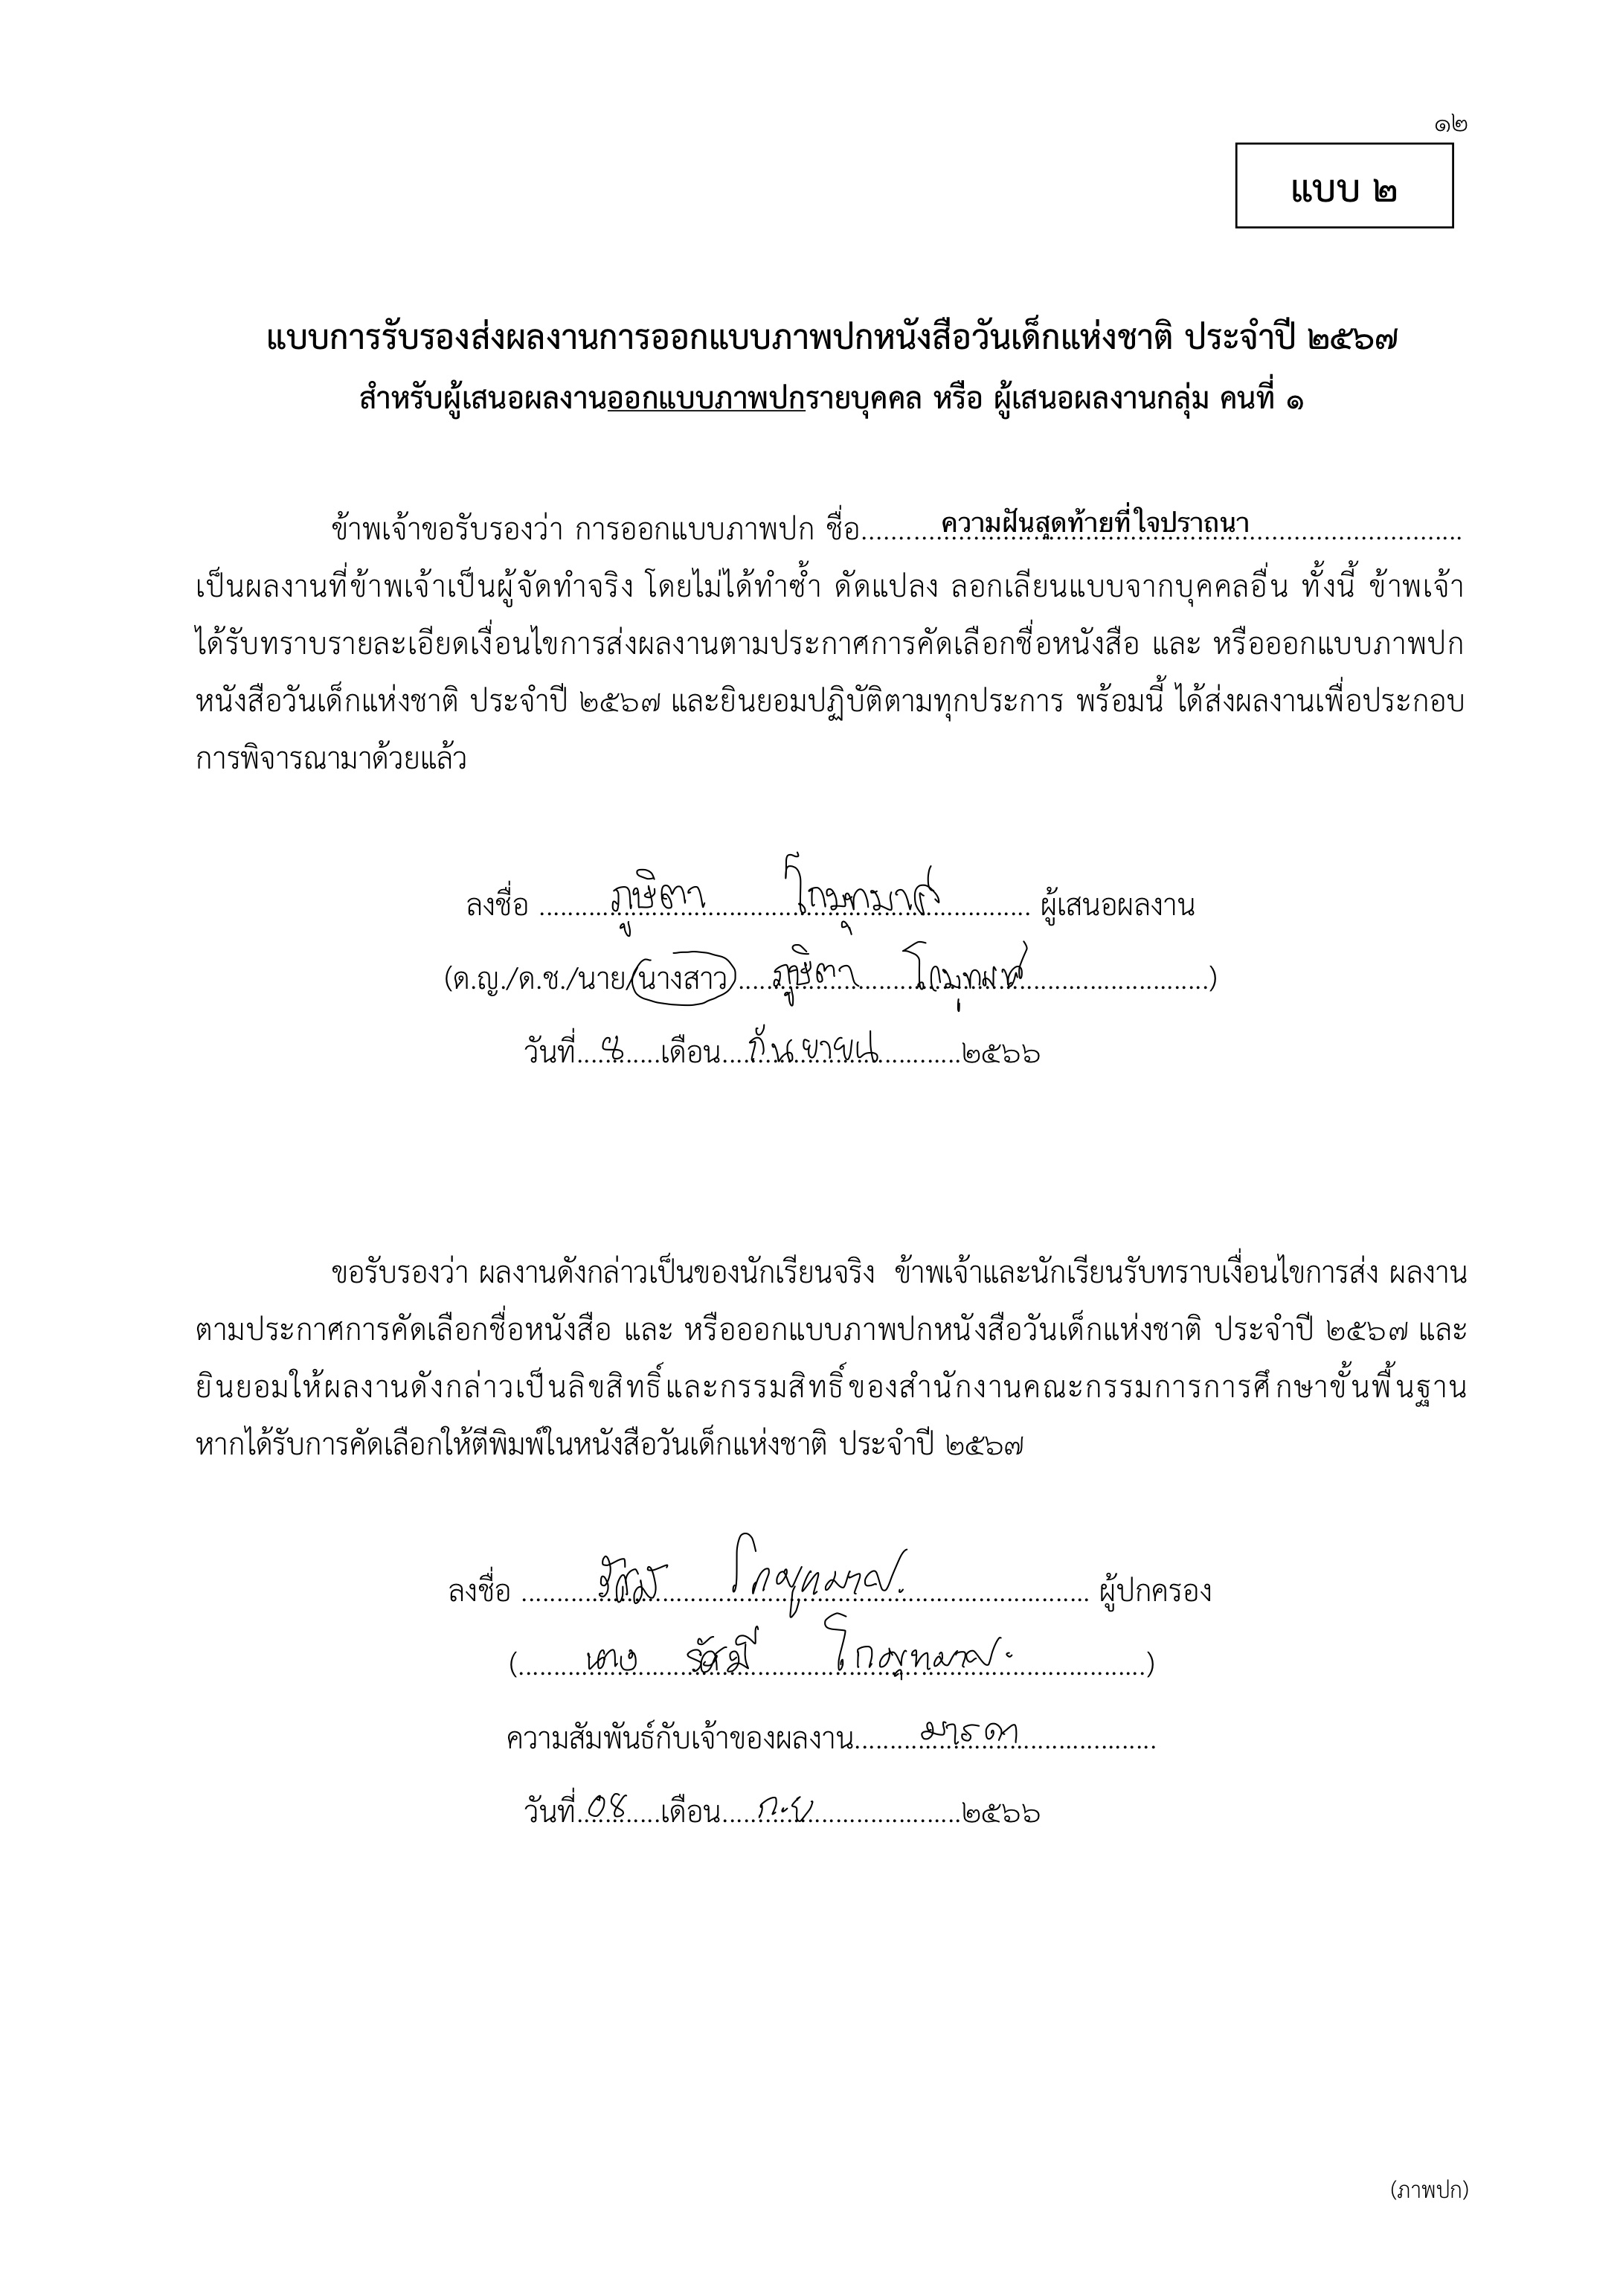 ๑๒
แบบ ๒
แบบการรับรองส่งผลงานการออกแบบภาพปกหนังสือวันเด็กแห่งชาติ ประจำปี ๒๕๖๗
สำหรับผู้เสนอผลงานออกแบบภาพปกรายบุคคล หรือ ผู้เสนอผลงานกลุ่ม คนที่ ๑
ข้าพเจ้าขอรับรองว่า การออกแบบภาพปก ชื่อ ความฝันสุดท้ายที่ใจปราถนา
เป็นผลงานที่ข้าพเจ้าเป็นผู้จัดทำจริง โดยไม่ได้ทำซ้ำ ดัดแปลง ลอกเลียนแบบจากบุคคลอื่น ทั้งนี้ ข้าพเจ้า
ได้รับทราบรายละเอียดเงื่อนไขการส่งผลงานตามประกาศการคัดเลือกชื่อหนังสือ และ หรือออกแบบภาพปก
หนังสือวันเด็กแห่งชาติ ประจำปี ๒๕๖๗ และยินยอมปฏิบัติตามทุกประการ พร้อมนี้ ได้ส่งผลงานเพื่อประกอบ
การพิจารณามาด้วยแล้ว
ลงชื่อ ภูษิตา ผู้เสนอผลงาน
(ด.ญ./ด.ช./นาย/นางสาว ภูษิตา)
วันที่ 8 เดือน กันยายน ๒๕๖๖
ขอรับรองว่า ผลงานดังกล่าวเป็นของนักเรียนจริง ข้าพเจ้าและนักเรียนรับทราบเงื่อนไขการส่ง ผลงาน
ตามประกาศการคัดเลือกชื่อหนังสือ และ หรือออกแบบภาพปกหนังสือวันเด็กแห่งชาติ ประจำปี ๒๕๖๗ และ
ยินยอมให้ผลงานดังกล่าวเป็นลิขสิทธิ์และกรรมสิทธิ์ของสำนักงานคณะกรรมการการศึกษาขั้นพื้นฐาน
หากได้รับการคัดเลือกให้ตีพิมพ์ในหนังสือวันเด็กแห่งชาติ ประจำปี ๒๕๖๗
ลงชื่อ ผู้ปกครอง
(นาง รัศมี)
ความสัมพันธ์กับเจ้าของผลงาน มารดา
วันที่ 08 เดือน ก.ย ๒๕๖๖
(ภาพปก)